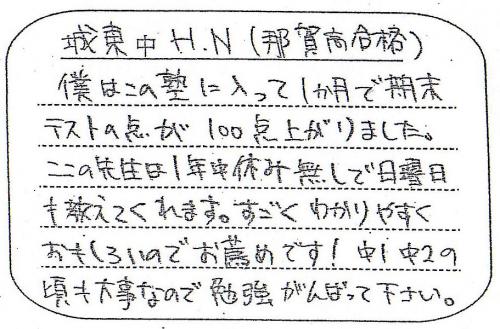 城東中 H.N (那賀高合格)
僕はこの塾に入って1か月で期末
テストの点が 100点上がりました。
ここの先生は1年中休み無しで日曜日
も教えてくれます。すごくわかりやすく
おもしろいのでお薦めです! 中1 中2の
頃も大事なので勉強がんばって下さい。